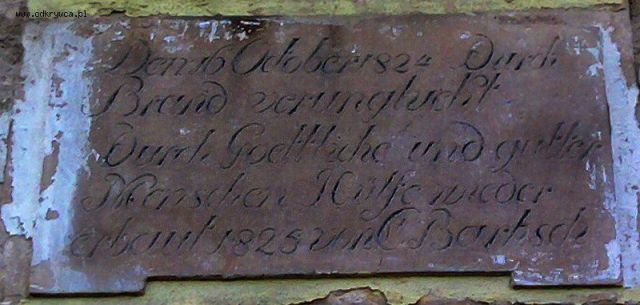 www.odkryuca.pl
Den 16 October 1824 Durch
Brand verunglückt
Durch Goettliche und gutter
Menschen Hülfe wieder
erbaut 1825 von C Bartsch